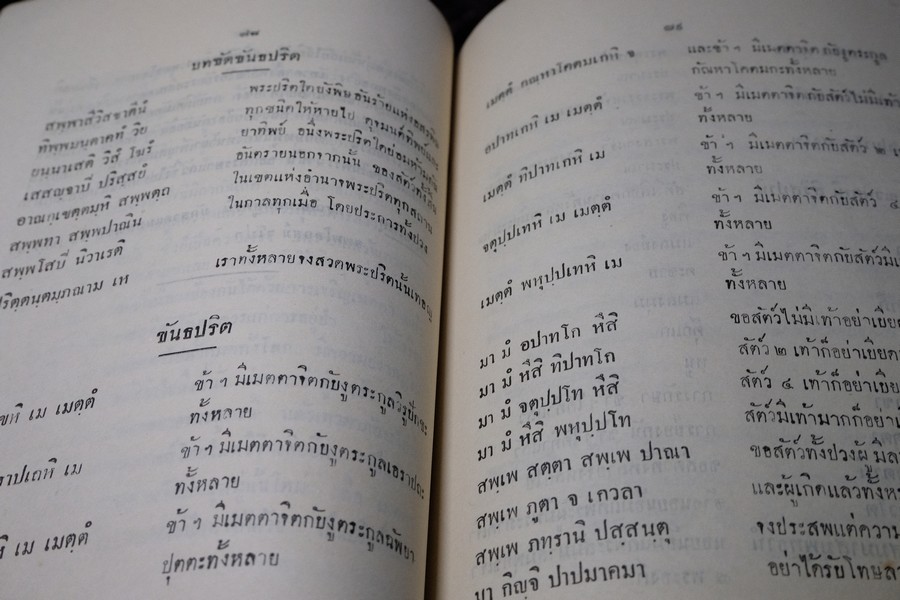 ๗๘
บทขัดขันธปริต
สพฺพาสีวิสชาตีนํ
ทิพฺพมนฺตาคทํ วิย
ยนฺนาเสติ วิสํ โฆรํ
เสสญฺจาปิ ปริสฺสยํ
อาณกฺเขตฺตมฺหิ สพฺพตฺถ
สพฺพทา สพฺพปาณินํ
สพฺพโสปิ นิวาเรติ
ปริตฺตนฺตมฺภณาม เห
พระปริตใดยังพิษอันร้ายแห่ง
ทุกชนิดให้หายไป ดุจมนต์ทิพย์
ยาทิพย์ อนึ่งพระปริตใดย่อมห้ามกัน
อันตรายนอกจากนั้น ของสัตว์ทั้งสิ้น
ในเขตแห่งอำนาจพระปริตทุกสถาน
ในกาลทุกเมื่อ โดยประการทั้งปวง
เราทั้งหลายจงสวดพระปริตนั้นเทอญ
ขันธปริต
เม เมตฺตํ
ข้า ฯ มีเมตตาจิตกับงูตระกูลวิรูปักขะ
ทั้งหลาย
ราปเถหิ เม
ข้า ฯ มีเมตตาจิตกับงูตระกูลเอราปถะ
ทั้งหลาย
หิ เม เมตฺตํ
ข้า ฯ มีเมตตาจิตกับงูตระกูลฉัพยา
ปุตตะทั้งหลาย
๗๙
เมตฺตํ กณฺหาโคตมเกหิ จ
และข้า ฯ มีเมตตาจิตกับงูตระกูล
กัณหาโคตมกะทั้งหลาย
อปาทเกหิ เม เมตฺตํ
ข้า ฯ มีเมตตาจิตกับสัตว์ไม่มีเท้า
ทั้งหลาย
เมตฺตํ ทิปาทเกหิ เม
ข้า ฯ มีเมตตาจิตกับสัตว์ ๒
ทั้งหลาย
จตุปฺปเทหิ เม เมตฺตํ
ข้า ฯ มีเมตตาจิตกับสัตว์ ๔
ทั้งหลาย
เมตฺตํ พหุปฺปเทหิ เม
ข้า ฯ มีเมตตาจิตกับสัตว์มี
ทั้งหลาย
มา มํ อปาทโก หึสิ
ขอสัตว์ไม่มีเท้าอย่าเบียด
มา มํ หึสิ ทิปาทโก
สัตว์ ๒ เท้าก็อย่าเบียด
มา มํ จตุปฺปโท หึสิ
สัตว์ ๔ เท้าก็อย่าเบีย
มา มํ หึสิ พหุปฺปโท
สัตว์มีเท้ามากก็อย่า
สพฺเพ สตฺตา สพฺเพ ปาณา
ขอสัตว์ทั้งปวงผู้มี
สพฺเพ ภูตา จ เกวลา
และผู้เกิดแล้วทั้ง
สพฺเพ ภทฺรานิ ปสฺสนฺตุ
จงประสพแต่ความ
มา กิญฺจิ ปาปมาคมา
อย่าได้รับโทษ